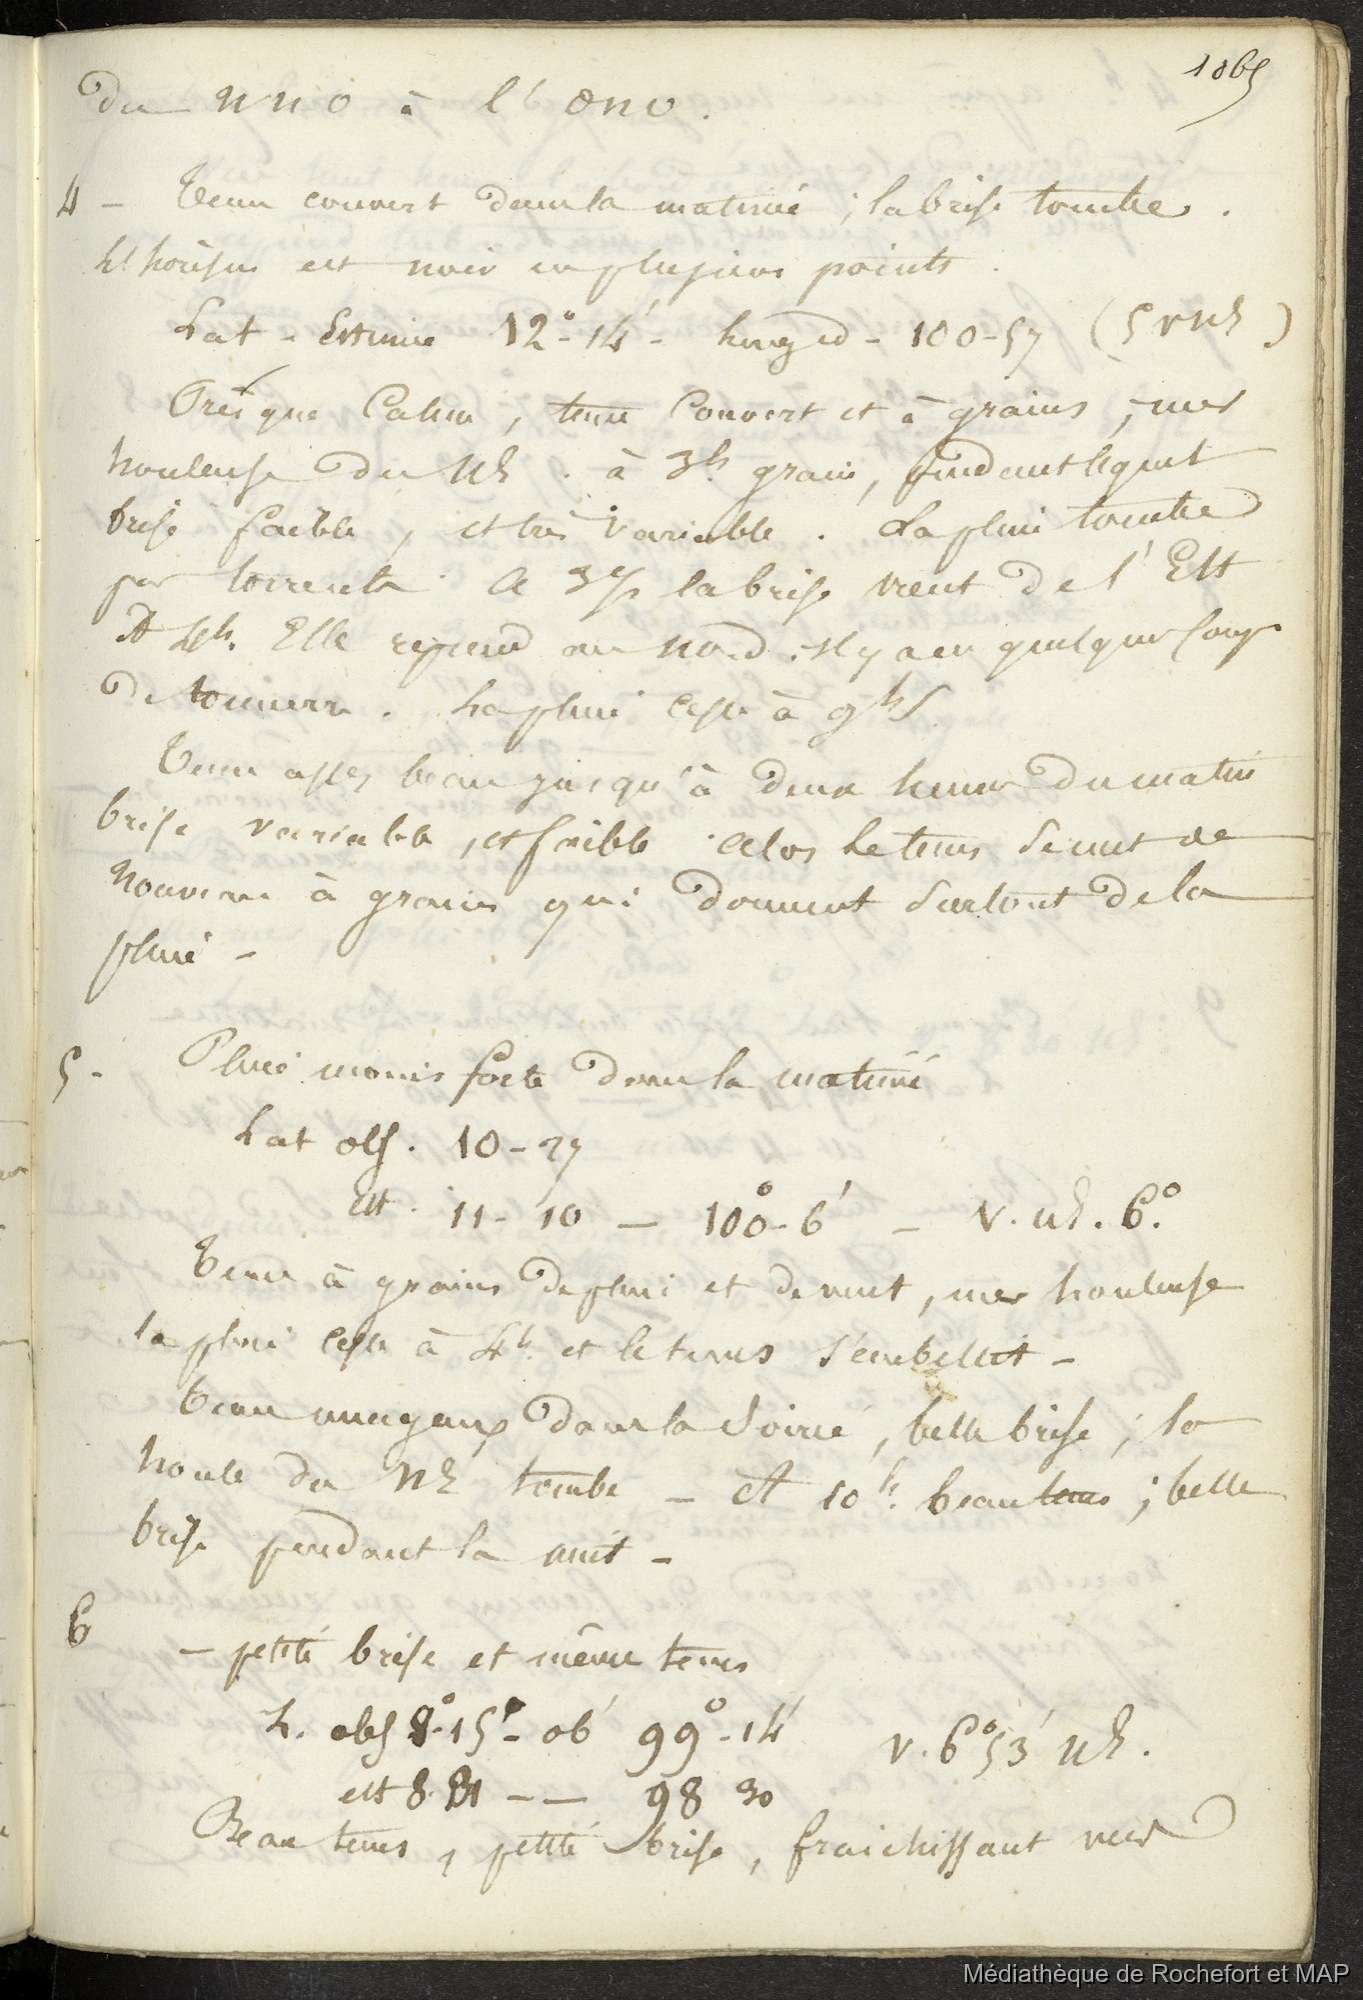 1865
du NNO à l'ONO.
4 - Tems couvert dans la matinée ; la brise tombe.
L'horison est noir en plusieurs points.
Lat - Estimée 12°-14' - Longd - 100-57 (5 v NE)
Presque Calme, tems Couvert et à grains ; mer
houleuse du NE. à 3h grain, pendant lequel
brise faible, et très variable. La pluie tombe
par torrents. A 3h½ la brise vient de l'Est
A 4h. Elle reprend au Nord. Il y a eu quelques coups
de tonnerre. La pluie cesse à 9h S
Tems assez beau jusqu'à deux heures du matin
brise variable, et faible. Alors le tems se met de
nouveau à grains qui donnent surtout de la
pluie -
5 - Pluie moins forte dans la matinée
Lat obs. 10-27
Est. 11-10 — 100°-6' — V. NE. 6°.
Tems à grains de pluie et de vent, mer houleuse
la pluie cesse à 4h. et le tems s'embellit -
Beau nuageux dans la soirée, belle brise ; la
houle du NE tombe - A 10h. beau tems ; belle
brise pendant la nuit -
6 - petite brise et même tems
L. obs 8°-15' - ob 99°-14' v. 6°53' NE.
est 8. — 98 30
Beau tems, petite brise, fraichissant mer
Médiathèque de Rochefort et MAP